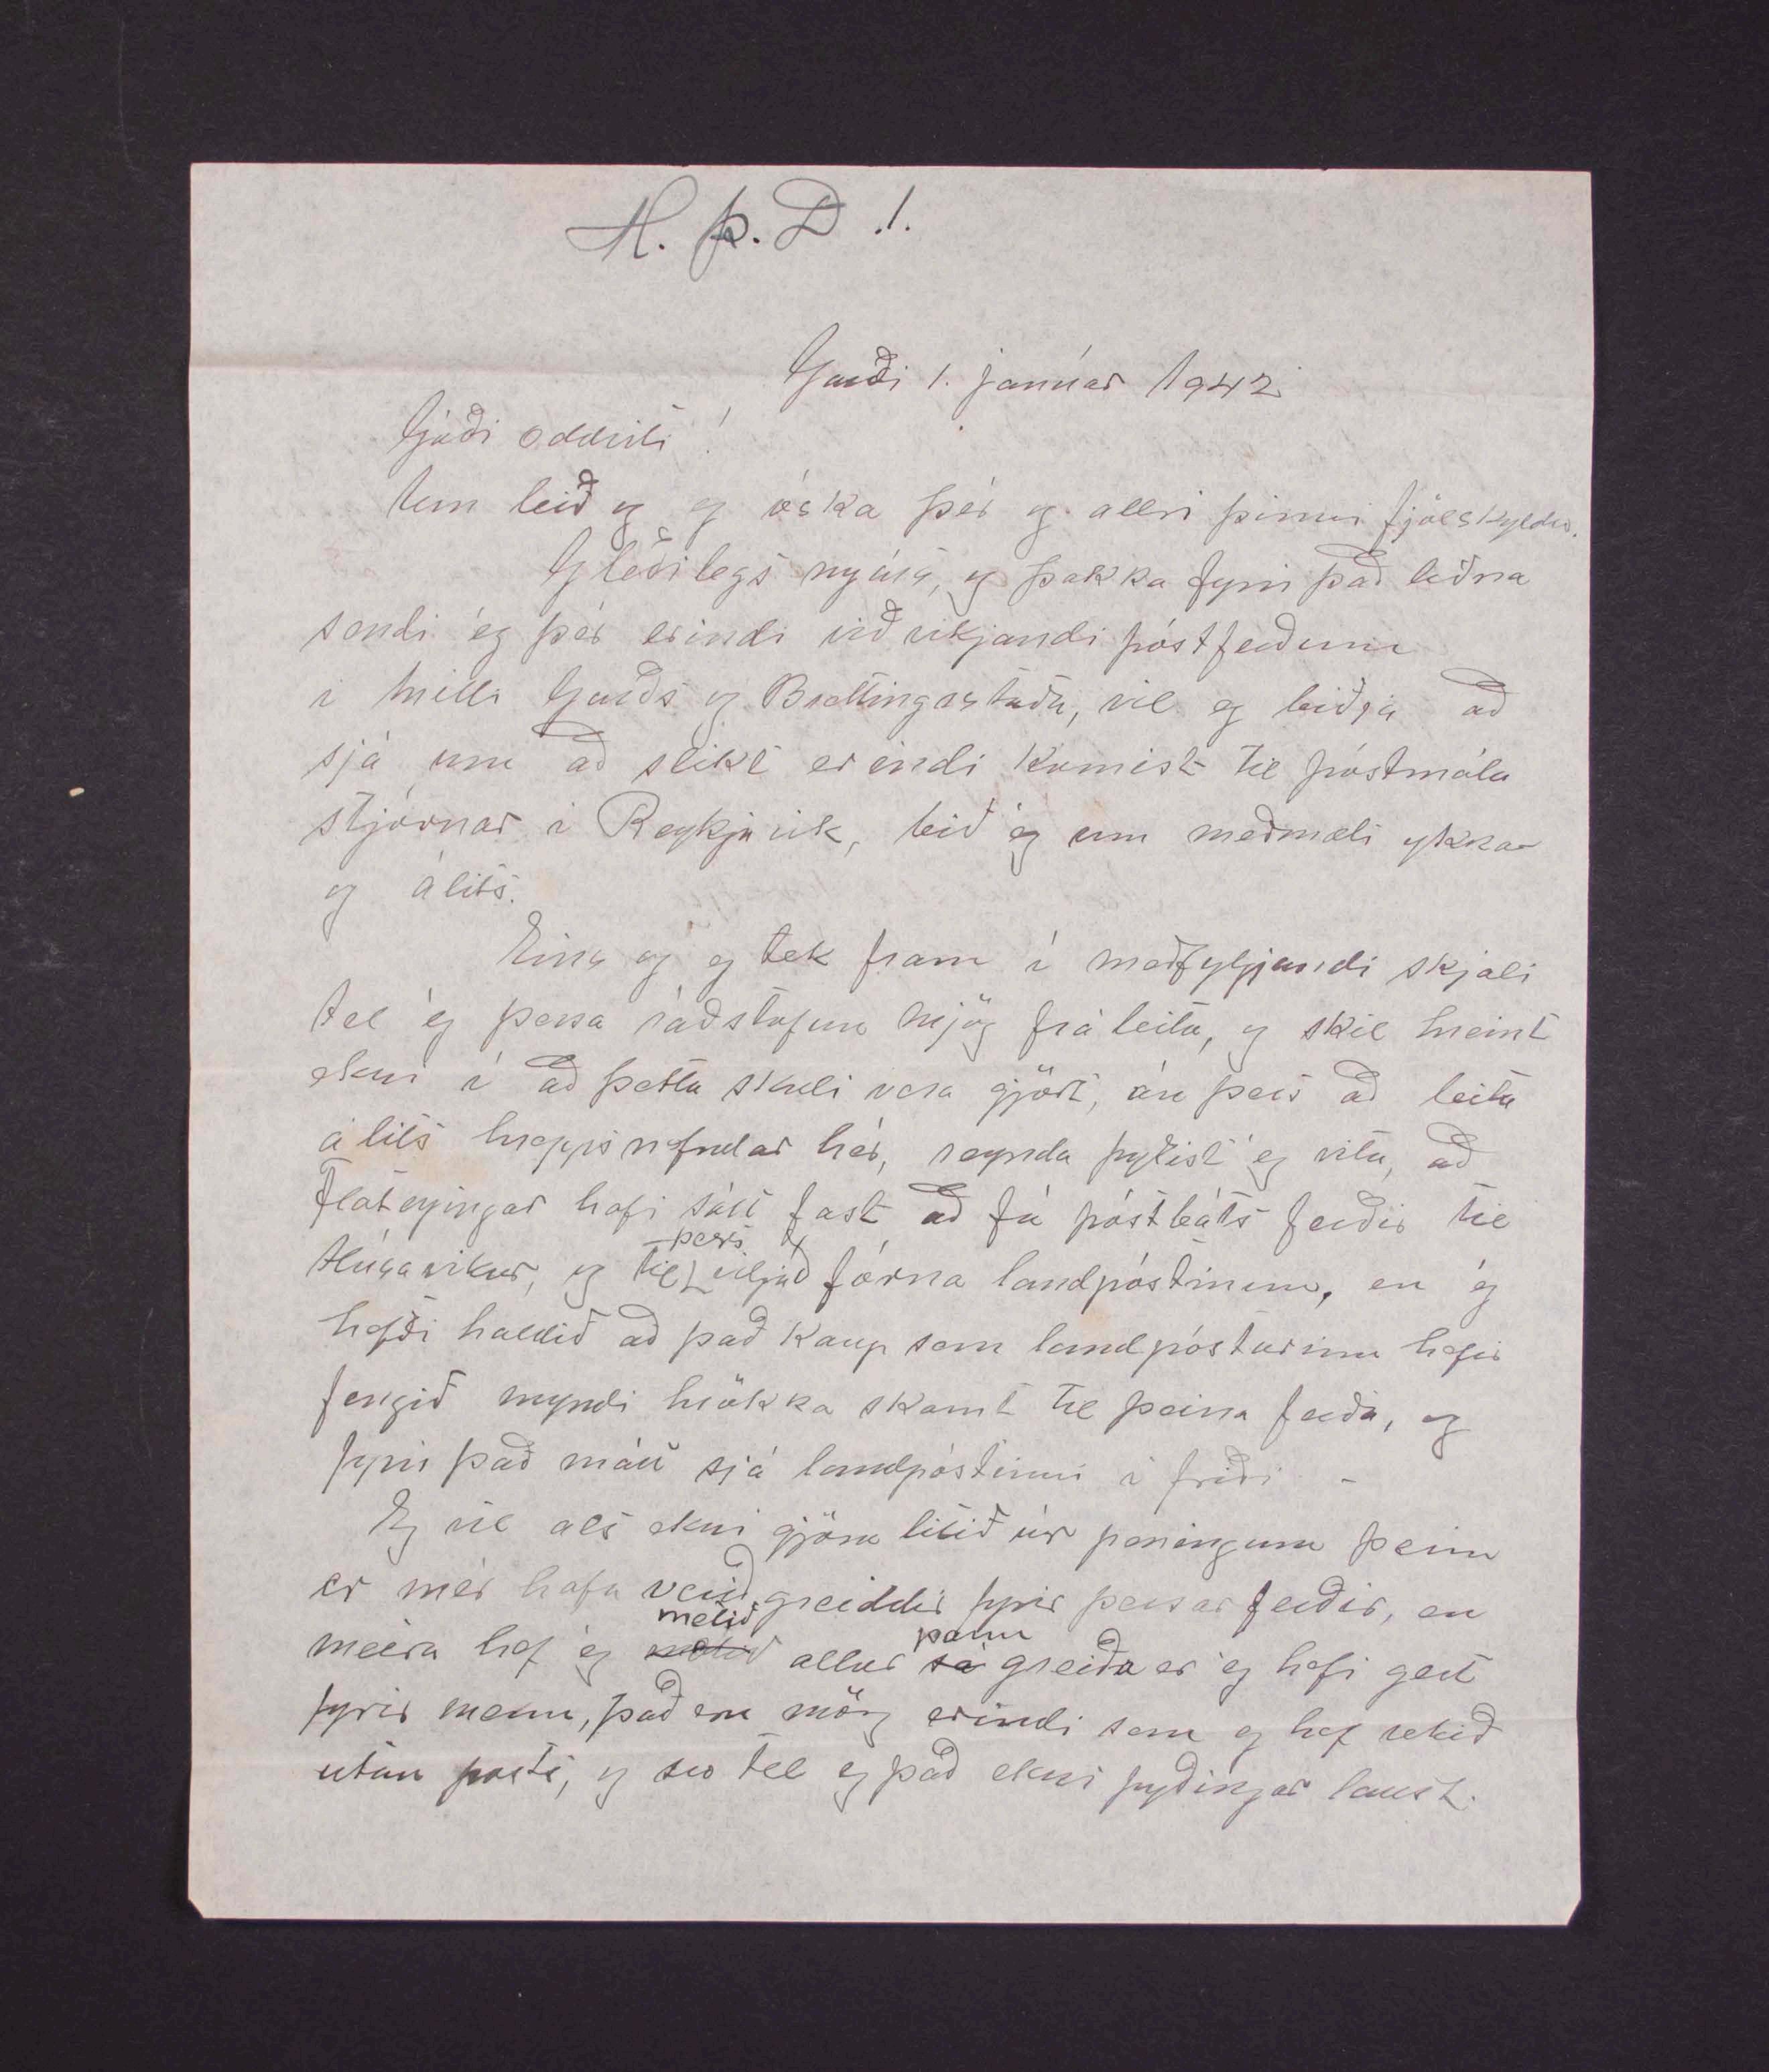 H. þ. D. 1.
Garði 1. janúar 1942
Góði oddviti!
Um leið og eg óska þér og allri þinni fjölskyldu.
Gleðilegs nýárs, og þakka fyrir það liðna
sendi ég þér erindi viðvikjandi póstferðum
i milli Garðs og Brettingsstaða, vil eg biðja að
sjá um að slikt erindi komist til póstmála
stjórnar i Reykjavik, bið ég um meðmæli ykkar
og álits.
Eins og eg tek fram í meðfylgjandi skjali
tel ég þessa ráðstöfun mjög fráleita, og skil hreint
ekki í að þetta skuli vera gjört, án þess að leita
álits hreppsnefndar hér, reynda þykist ég vita, að
Flateyingar hafi sótt fast að fá póstbáts ferðir til
Húsavikur, og til þess viljað fórna landpóstinum, en ég
hefði haldið að það kaup sem landpósturinn hefir
fengið myndi hrökka skamt til þeirra ferða, og
fyrir það mátt sjá landpóstinn i friði -
Eg vil als ekki gjöra litið úr peningum þeim
er mér hafa verið greiddir fyrir þessar ferðir, en
meira hef ég metið allan þann greiða er ég hefi gert
fyrir menn, það eru mörg erindi sem eg hef rekið
utan posts, og svo tel eg það ekki þyðingar laust.